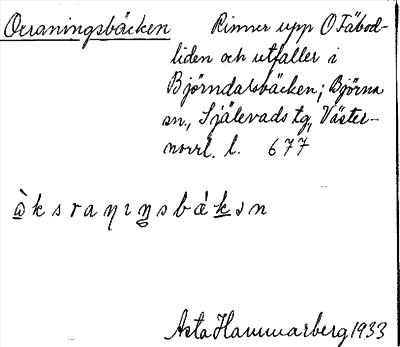 Ocraningsbäcken Rinner upp O Fäbod-
liden och utfaller i
Björndalsbäcken; Björna
sn., Själevads tg, Väster-
norrl. l. 677
Asta Hammarberg 1933